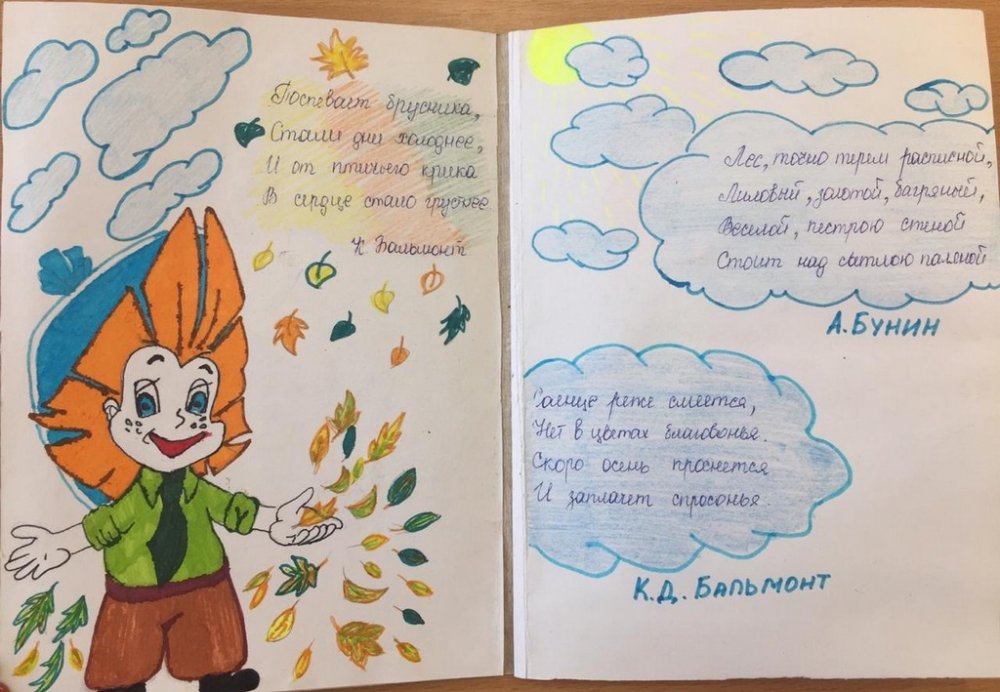 Поспевает брусника,
Стали дни холоднее,
И от птичьего крика
В сердце стало грустнее
К Бальмонт
Лес, точно терем расписной,
Лиловый, золотой, багряный,
Веселой, пестрою стеной
Стоит над светлою поляной
А. БУНИН
Солнце реже смеется,
Нет в цветах благовонья.
Скоро осень проснется
И заплачет спросонья.
К.Д. БАЛЬМОНТ